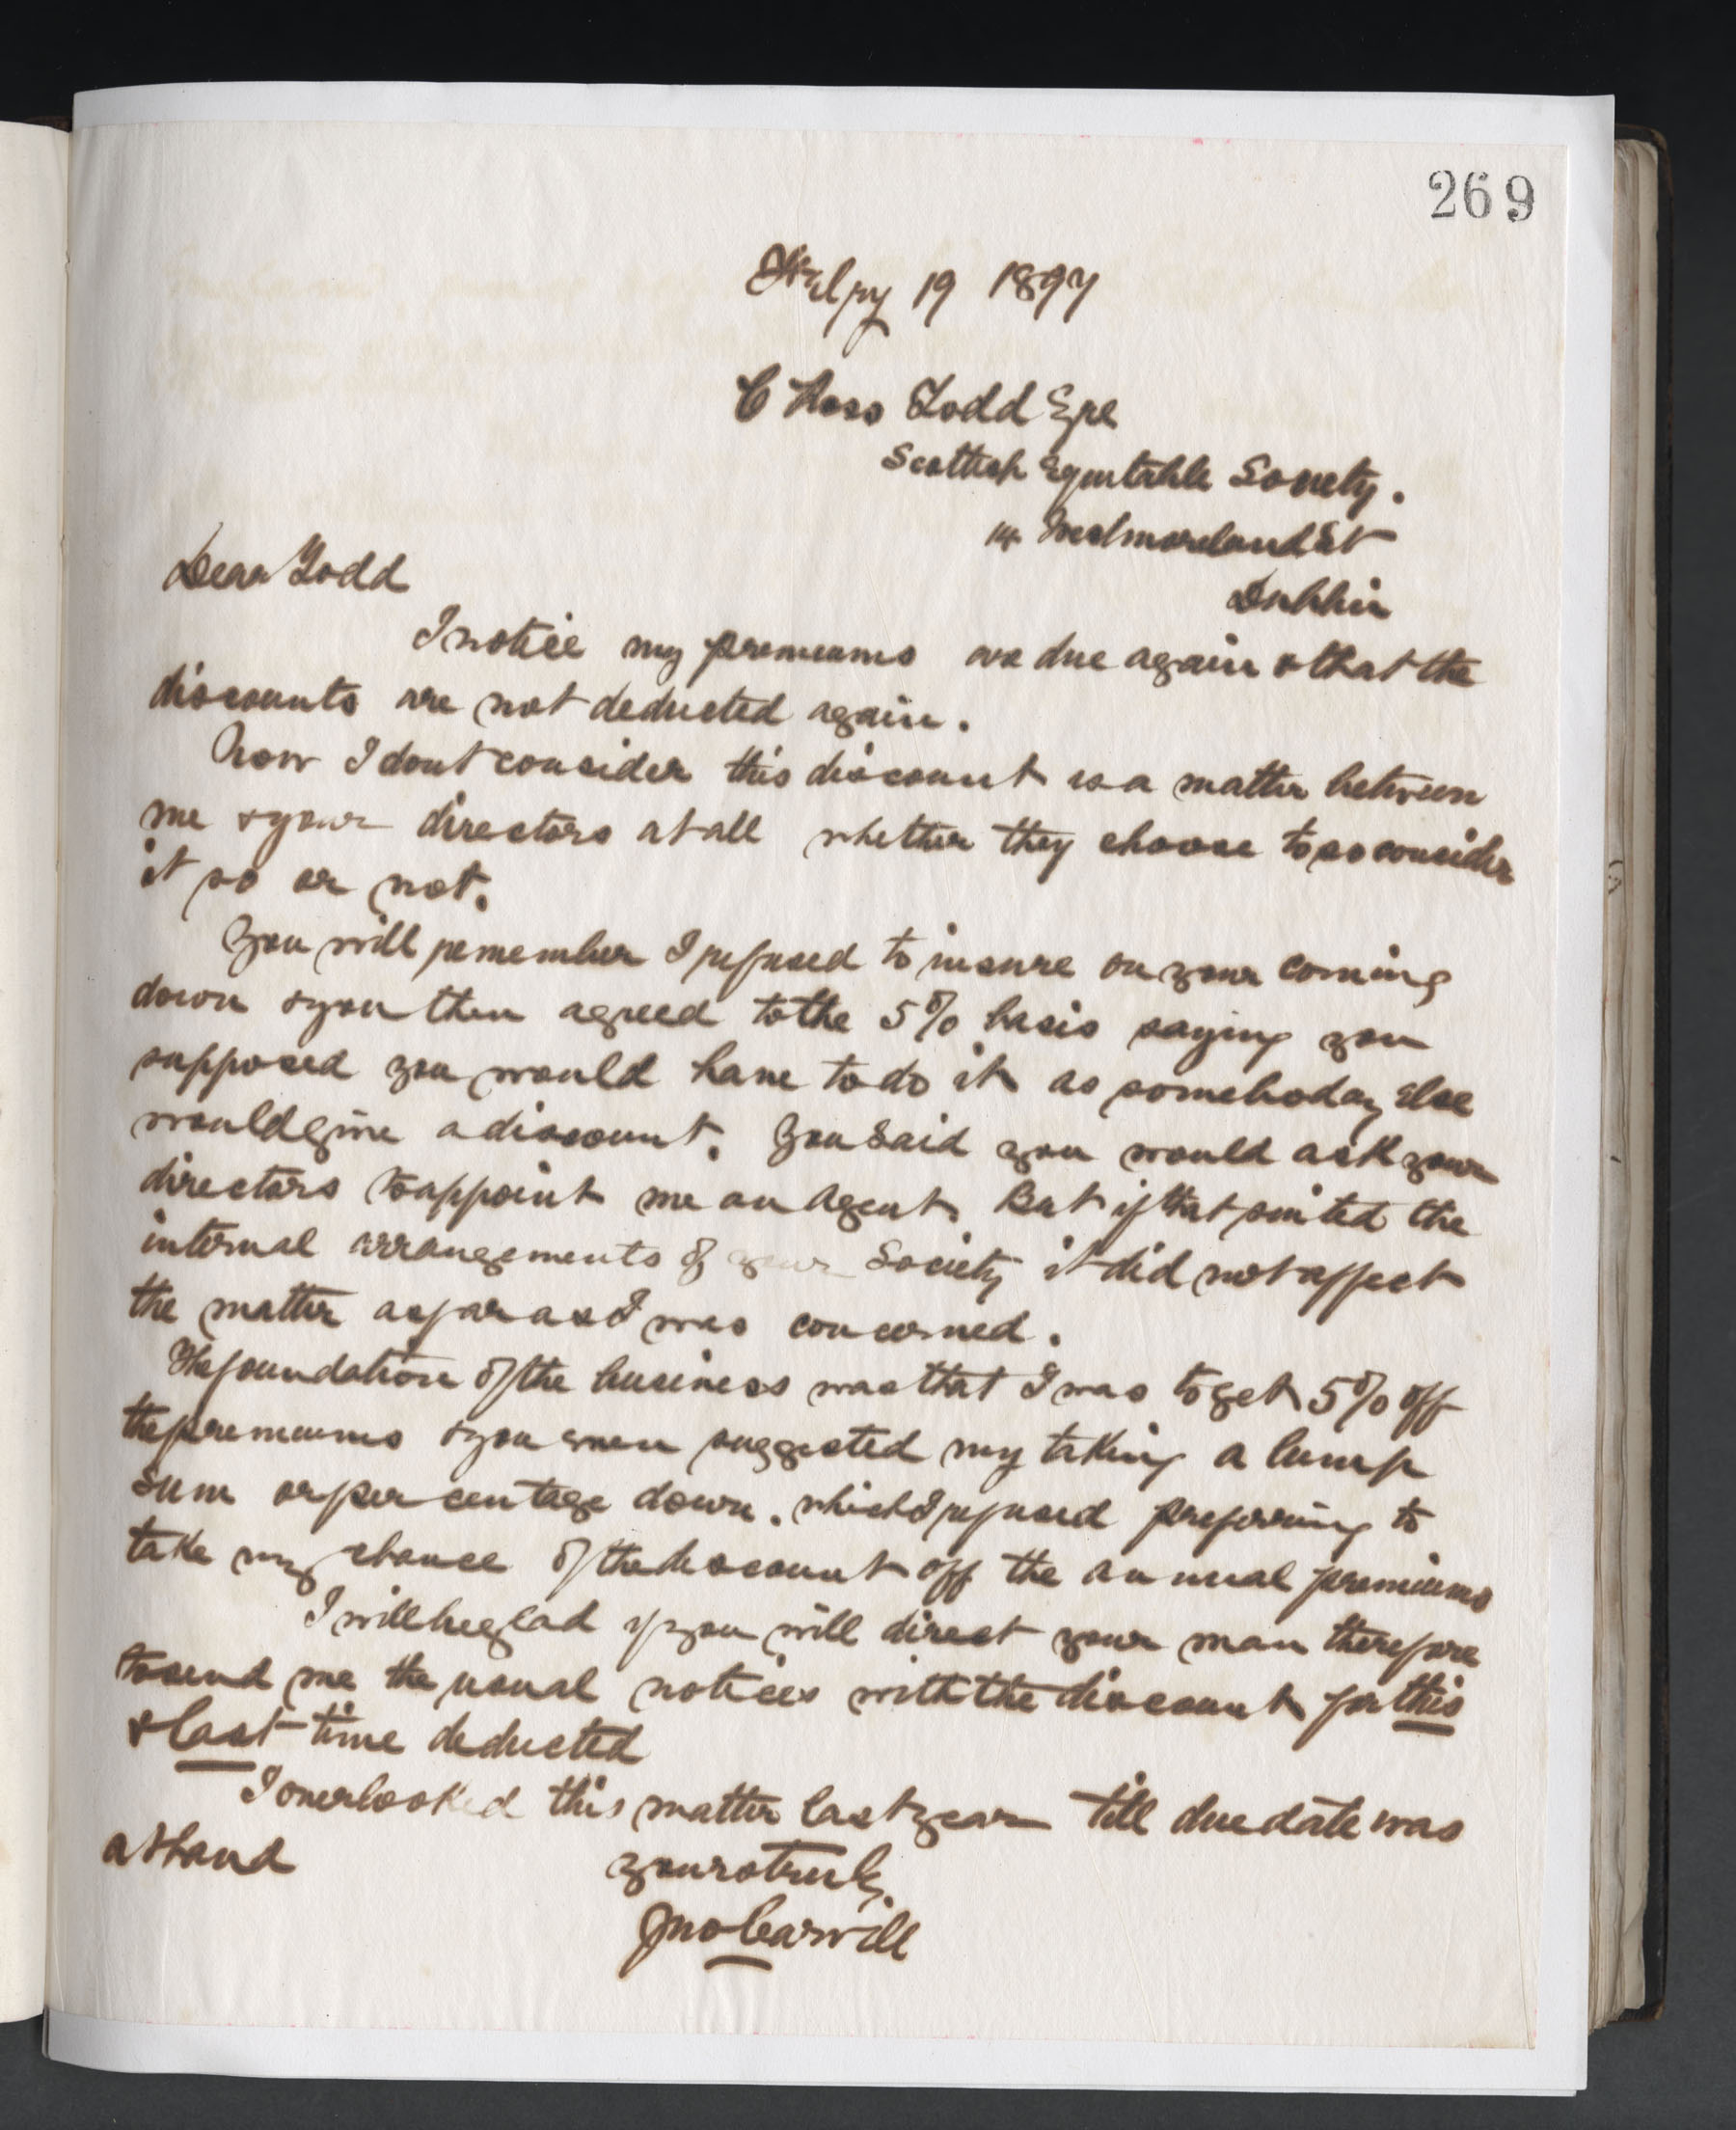 269
Feby 19 1897
C Ross Todd Esqe
Scottish Equitable Society.
14 Westmoreland St
Dublin
Dear Todd
I notice my premiums are due again & that the
discounts are not deducted again.
Now I dont consider this discount is a matter between
me & your directors at all whether they choose to so consider
it so or not.
You will remember I refused to insure on your coming
down & you then agreed to the 5% basis saying you
supposed you would have to do it as somebody else
would give a discount. You said you would ask your
directors to appoint me an Agent. But if that suited the
internal arrangements of your Society it did not affect
the matter as far as I was concerned.
The foundation of the business was that I was to get 5% off
the premiums & you even suggested my taking a lump
sum or per centage down. which I refused preferring to
take my chance of the discount off the annual premiums
I will be glad if you will direct your man therefore
to send me the usual notices with the discount for this
& last time deducted
I overlooked this matter last year till due date was
at hand
yours truly
Jno Carvill